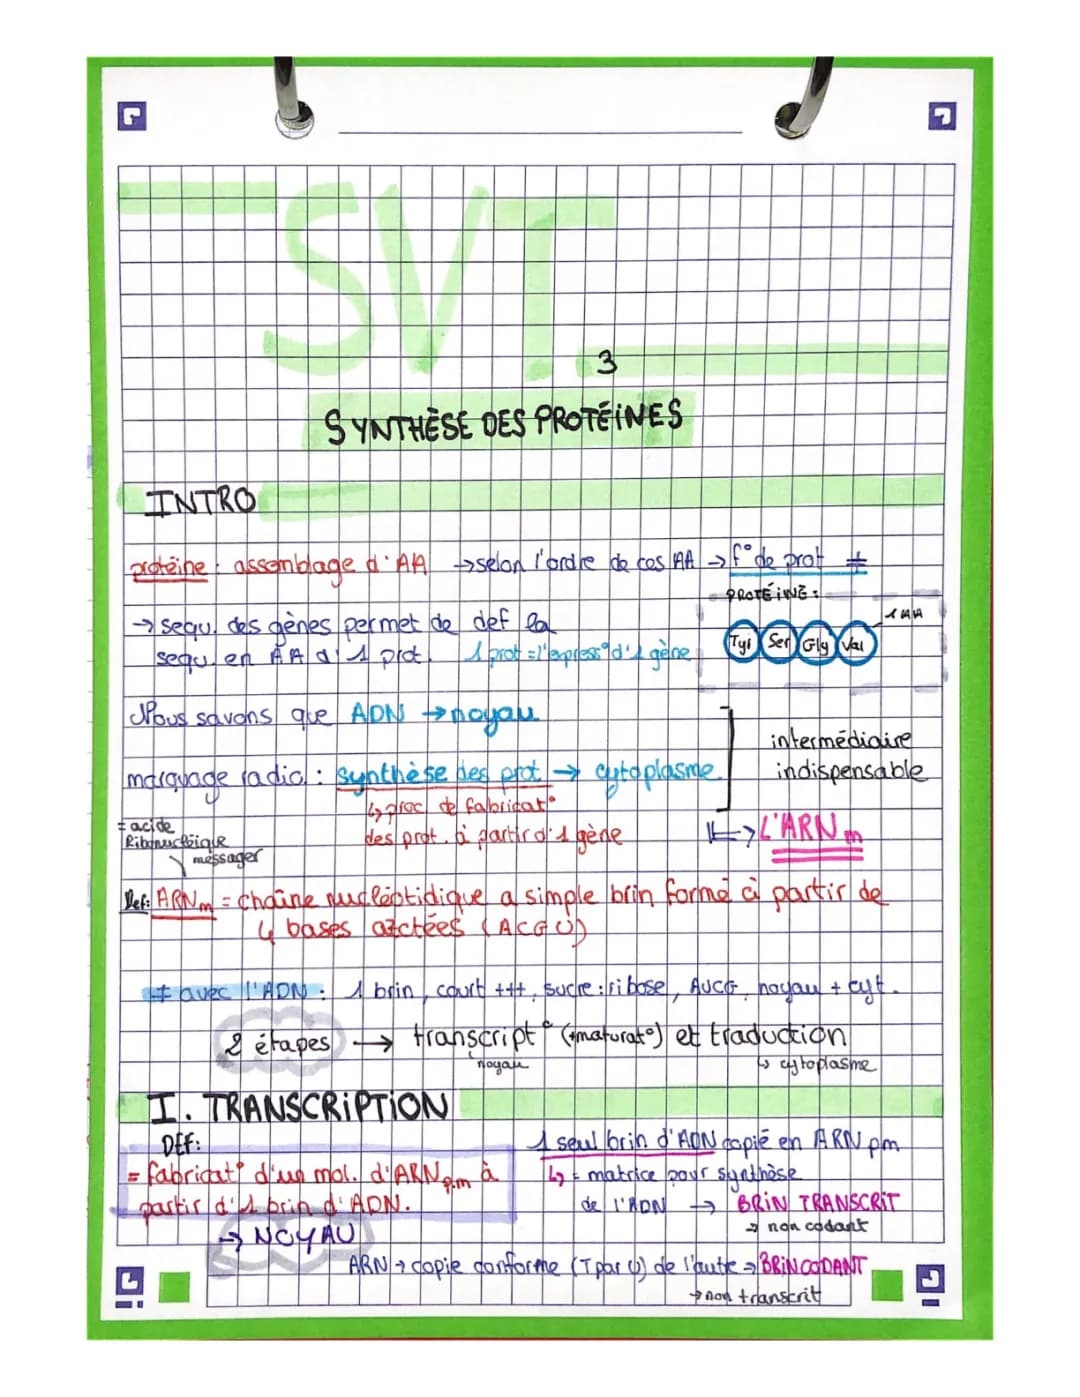 SVT
3
SYNTHÈSE DES PROTÉINES
INTRO
protéine : assemblage d'AA → selon l'ordre de ces AA → f° de prot ≠
PROTÉINE :
1 AA
→ sequ. des gènes permet de def la
sequ. en AA d'1 prot. 1 prot = l'express° d'1 gène
Tyr Ser Gly Val
Nous savons que ADN → noyau
intermédiaire
indispensable
marquage radio. : synthèse des prot → cytoplasme
↳ proc de fabricat°
des prot. à partir d'1 gène
↳ L'ARNm
= acide
Ribonucléique
messager
Def: ARNm = chaîne nucléotidique a simple brin formé à partir de
4 bases azotées (ACGU)
≠ avec l'ADN : 1 brin, court +++, sucre : ribose, AUCG, noyau + cyt.
2 étapes → transcript° (+maturat°) et traduction
noyau
↳ cytoplasme
I. TRANSCRIPTION
DEF:
= fabricat° d'un mol. d'ARNpm à
partir d'1 brin d'ADN.
→ NOYAU
1 seul brin d'ADN copié en ARN pm
↳ = matrice pour synthèse
de l'ADN → BRIN TRANSCRIT
→ non codant
ARN → copie conforme (T par U) de l'autre → BRIN CODANT
→ non transcrit